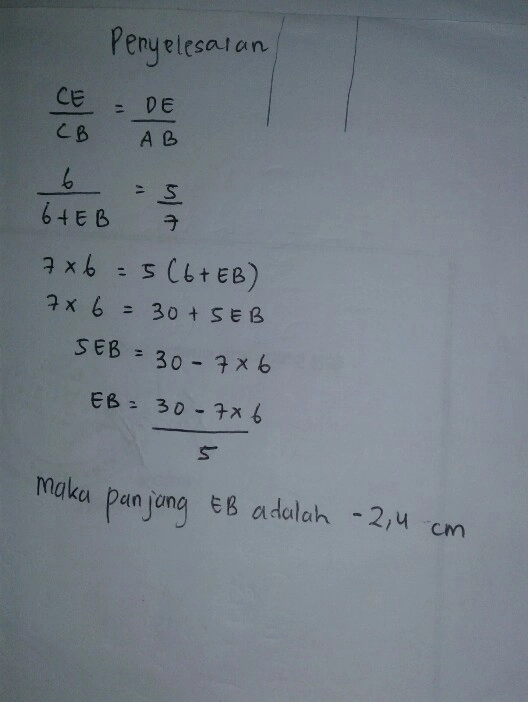 Penyelesaian
CE/CB = DE/AB
6/6+EB = 5/7
7×6 = 5(6+EB)
7×6 = 30+5EB
5EB = 30-7×6
EB = 30-7×6/5
Maka panjang EB adalah -2,4 cm